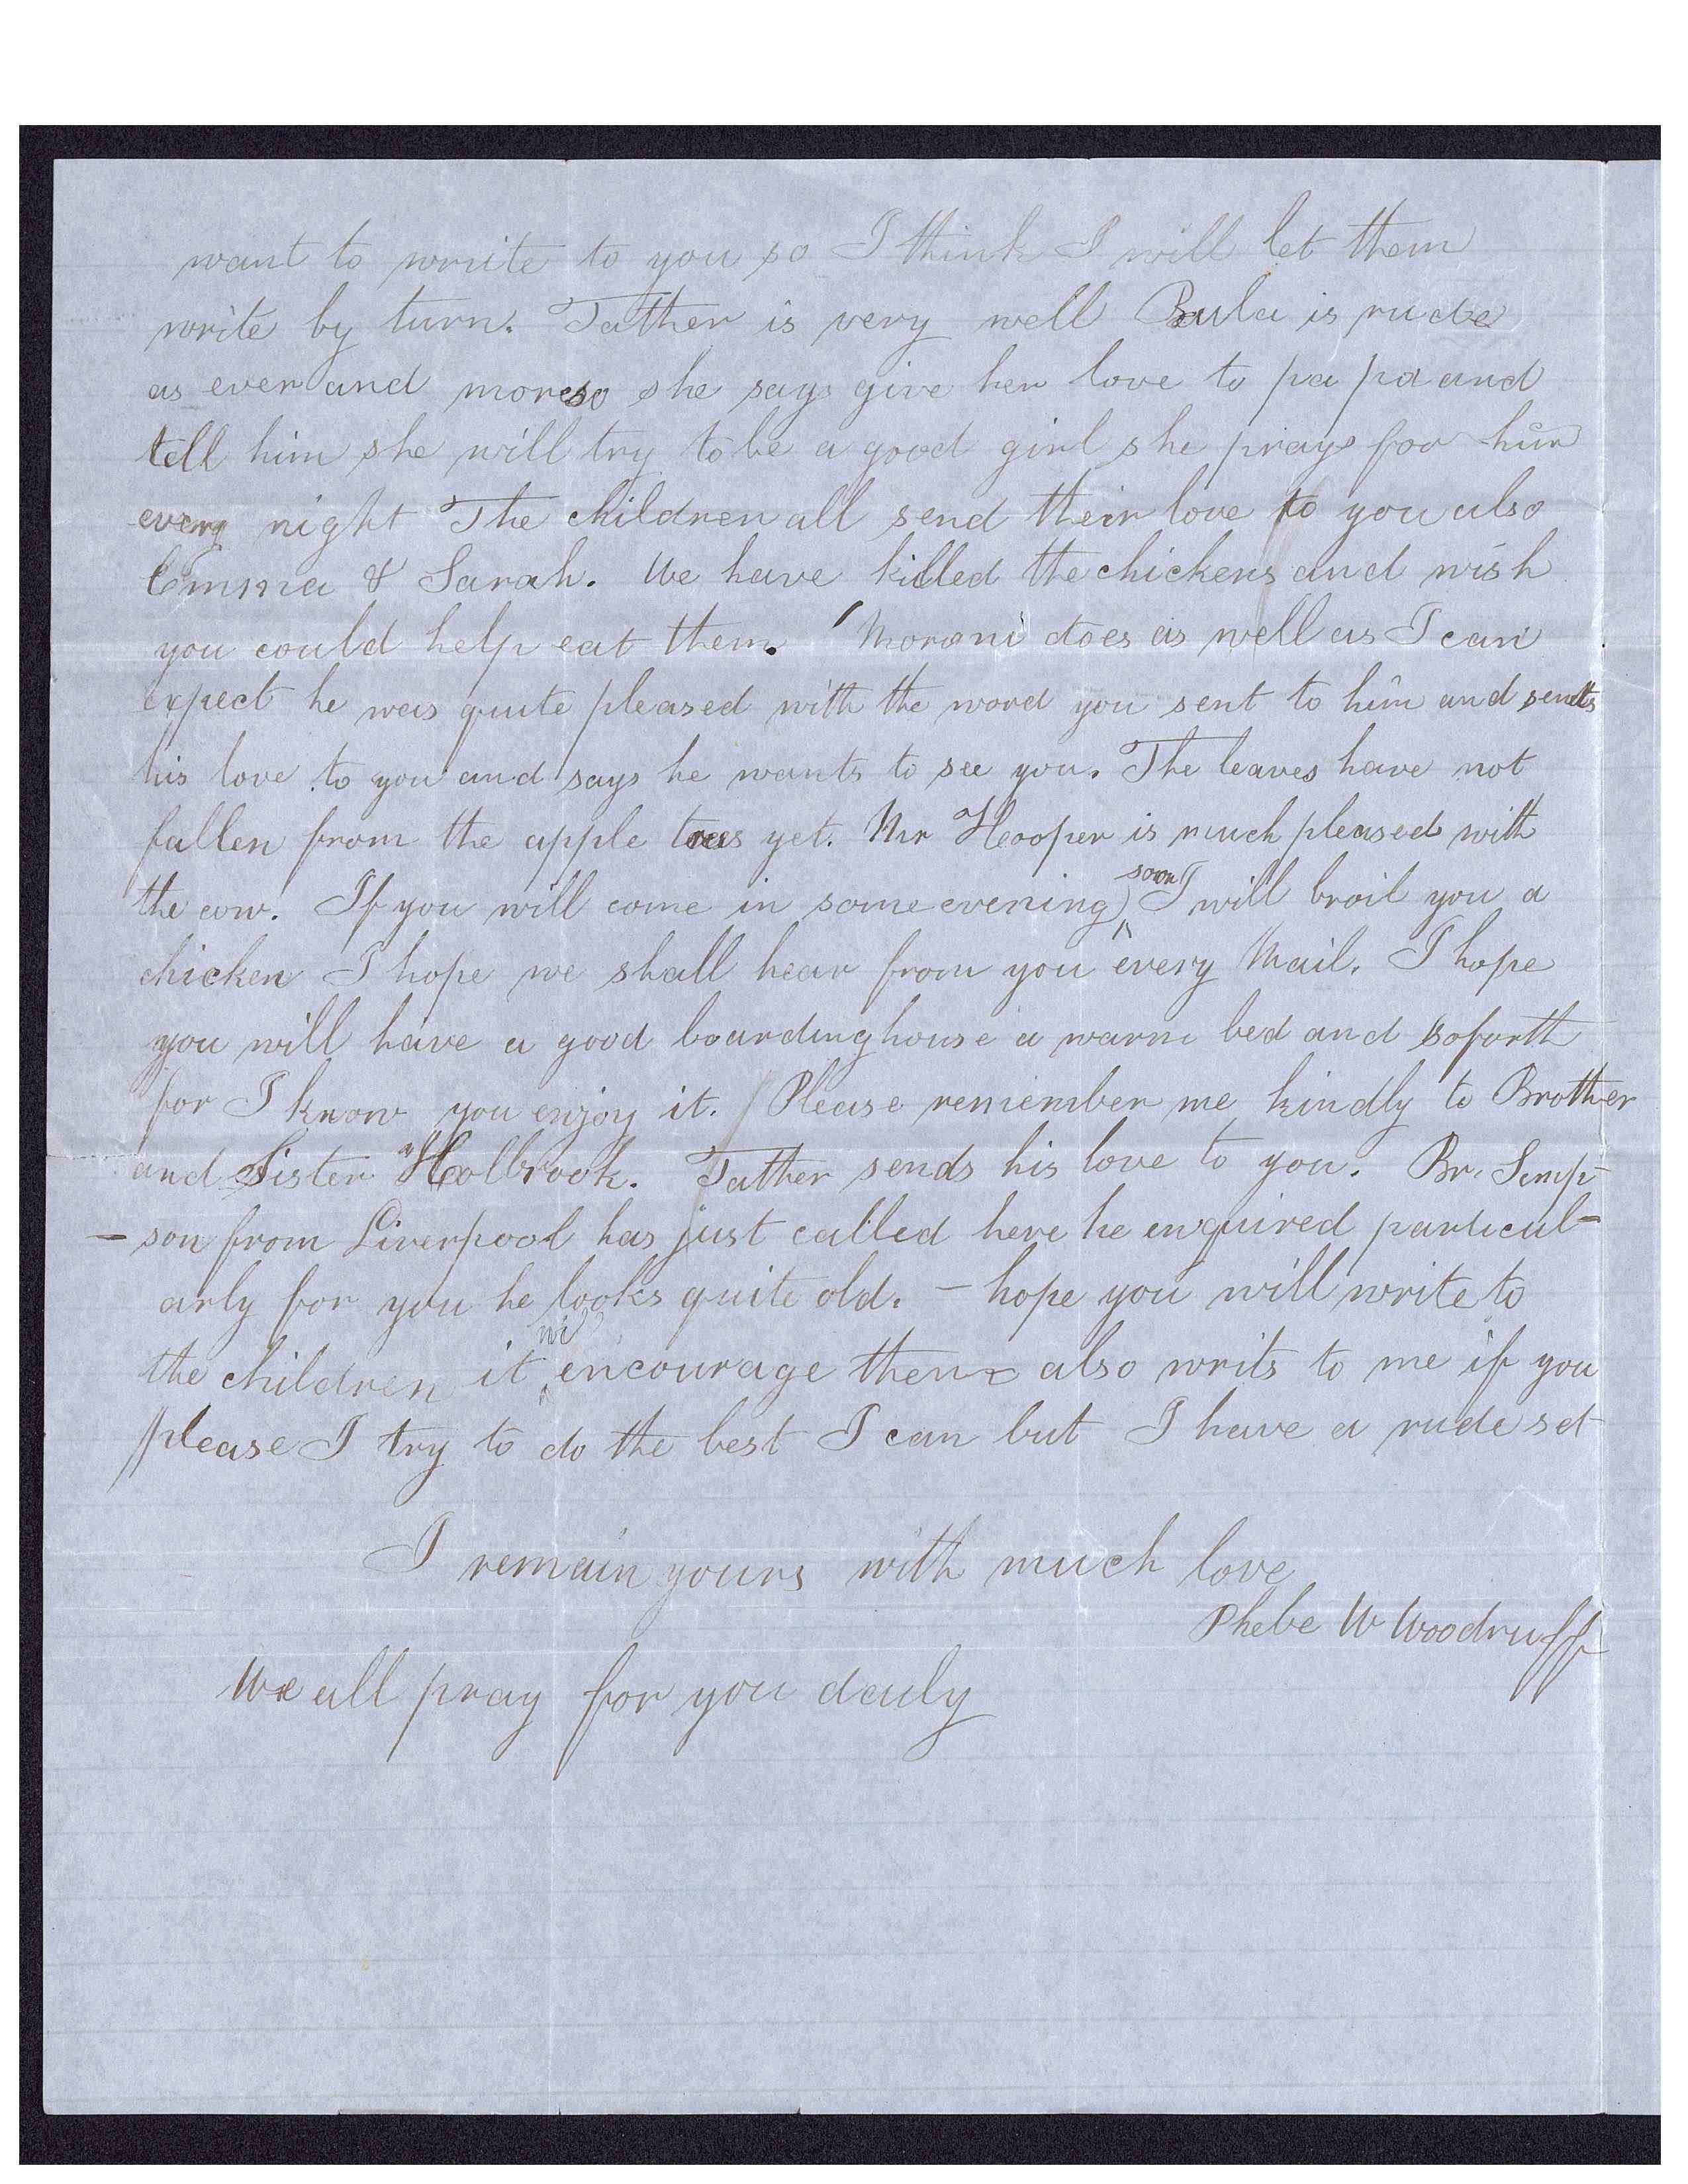 want to write to you so I think I will let them
write by turn. Father is very well Bula is rude
as ever and more so she says give her love to pa pa and
tell him she will try to be a good girl she prays for him
every night The children all send their love to you also
Emma & Sarah. We have killed the chickens and wish
you could help eat them. Moroni does as well as I can
expect he was quite pleased with the word you sent to him and sends
his love to you and says he wants to see you. The leaves have not
fallen from the apple trees yet. Mr Hooper is much pleased with
the cow. If you will come in some evening soon I will broil you a
chicken I hope we shall hear from you every Mail. I hope
you will have a good boardinghouse a warm bed and soforth
for I know you enjoy it. Please remember me kindly to Brother
and Sister Holbrook. Father sends his love to you. Br. Simp-
-son from Liverpool has just called here he enquired particul-
arly for you he looks quite old. – hope you will write to
the children it wi encourage them also writs to me if you
please I try to do the best I can but I have a rude set
I remain yours with much love
Phebe W Woodruff
We all pray for you daily